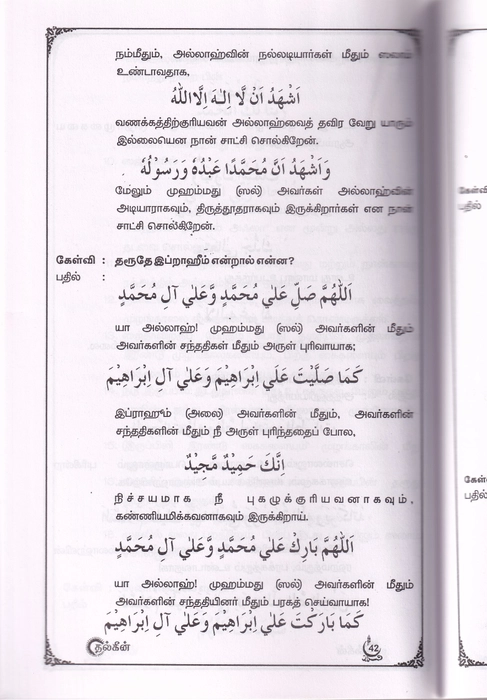 நம்மீதும், அல்லாஹ்வின் நல்லடியார்கள் மீதும் ஸலாம்
உண்டாவதாக,
اَشْهَدُ اَنْ لَّا اِلٰهَ اِلَّا اللّٰهُ
வணக்கத்திற்குரியவன் அல்லாஹ்வைத் தவிர வேறு யாரும்
இல்லையென நான் சாட்சி சொல்கிறேன்.
وَاَشْهَدُ اَنَّ مُحَمَّدًا عَبْدُهٗ وَرَسُوْلُهٗ
மேலும் முஹம்மது (ஸல்) அவர்கள் அல்லாஹ்வின்
அடியாராகவும், திருத்தூதராகவும் இருக்கிறார்கள் என நான்
சாட்சி சொல்கிறேன்.
கேள்வி : தரூதே இப்ராஹீம் என்றால் என்ன?
பதில் :
اَللّٰهُمَّ صَلِّ عَلٰي مُحَمَّدٍ وَّعَلٰي آلِ مُحَمَّدٍ
யா அல்லாஹ்! முஹம்மது (ஸல்) அவர்களின் மீதும்
அவர்களின் சந்ததிகள் மீதும் அருள் புரிவாயாக;
كَمَا صَلَّيْتَ عَلٰي اِبْرَاهِيْمَ وَعَلٰي آلِ اِبْرَاهِيْمَ
இப்ராஹூம் (அலை) அவர்களின் மீதும், அவர்களின்
சந்ததிகளின் மீதும் நீ அருள் புரிந்ததைப் போல,
اِنَّكَ حَمِيْدٌ مَّجِيْدٌ
நிச்சயமாக நீ புகழுக்குரியவனாகவும்,
கண்ணியமிக்கவனாகவும் இருக்கிறாய்.
اَللّٰهُمَّ بَارِكْ عَلٰي مُحَمَّدٍ وَّعَلٰي آلِ مُحَمَّدٍ
யா அல்லாஹ்! முஹம்மது (ஸல்) அவர்களின் மீதும்
அவர்களின் சந்ததியினர் மீதும் பரகத் செய்வாயாக!
كَمَا بَارَكْتَ عَلٰي اِبْرَاهِيْمَ وَعَلٰي آلِ اِبْرَاهِيْمَ
தல்கீன்
42
கேள்வி
பதில்
கேள்
பதில்